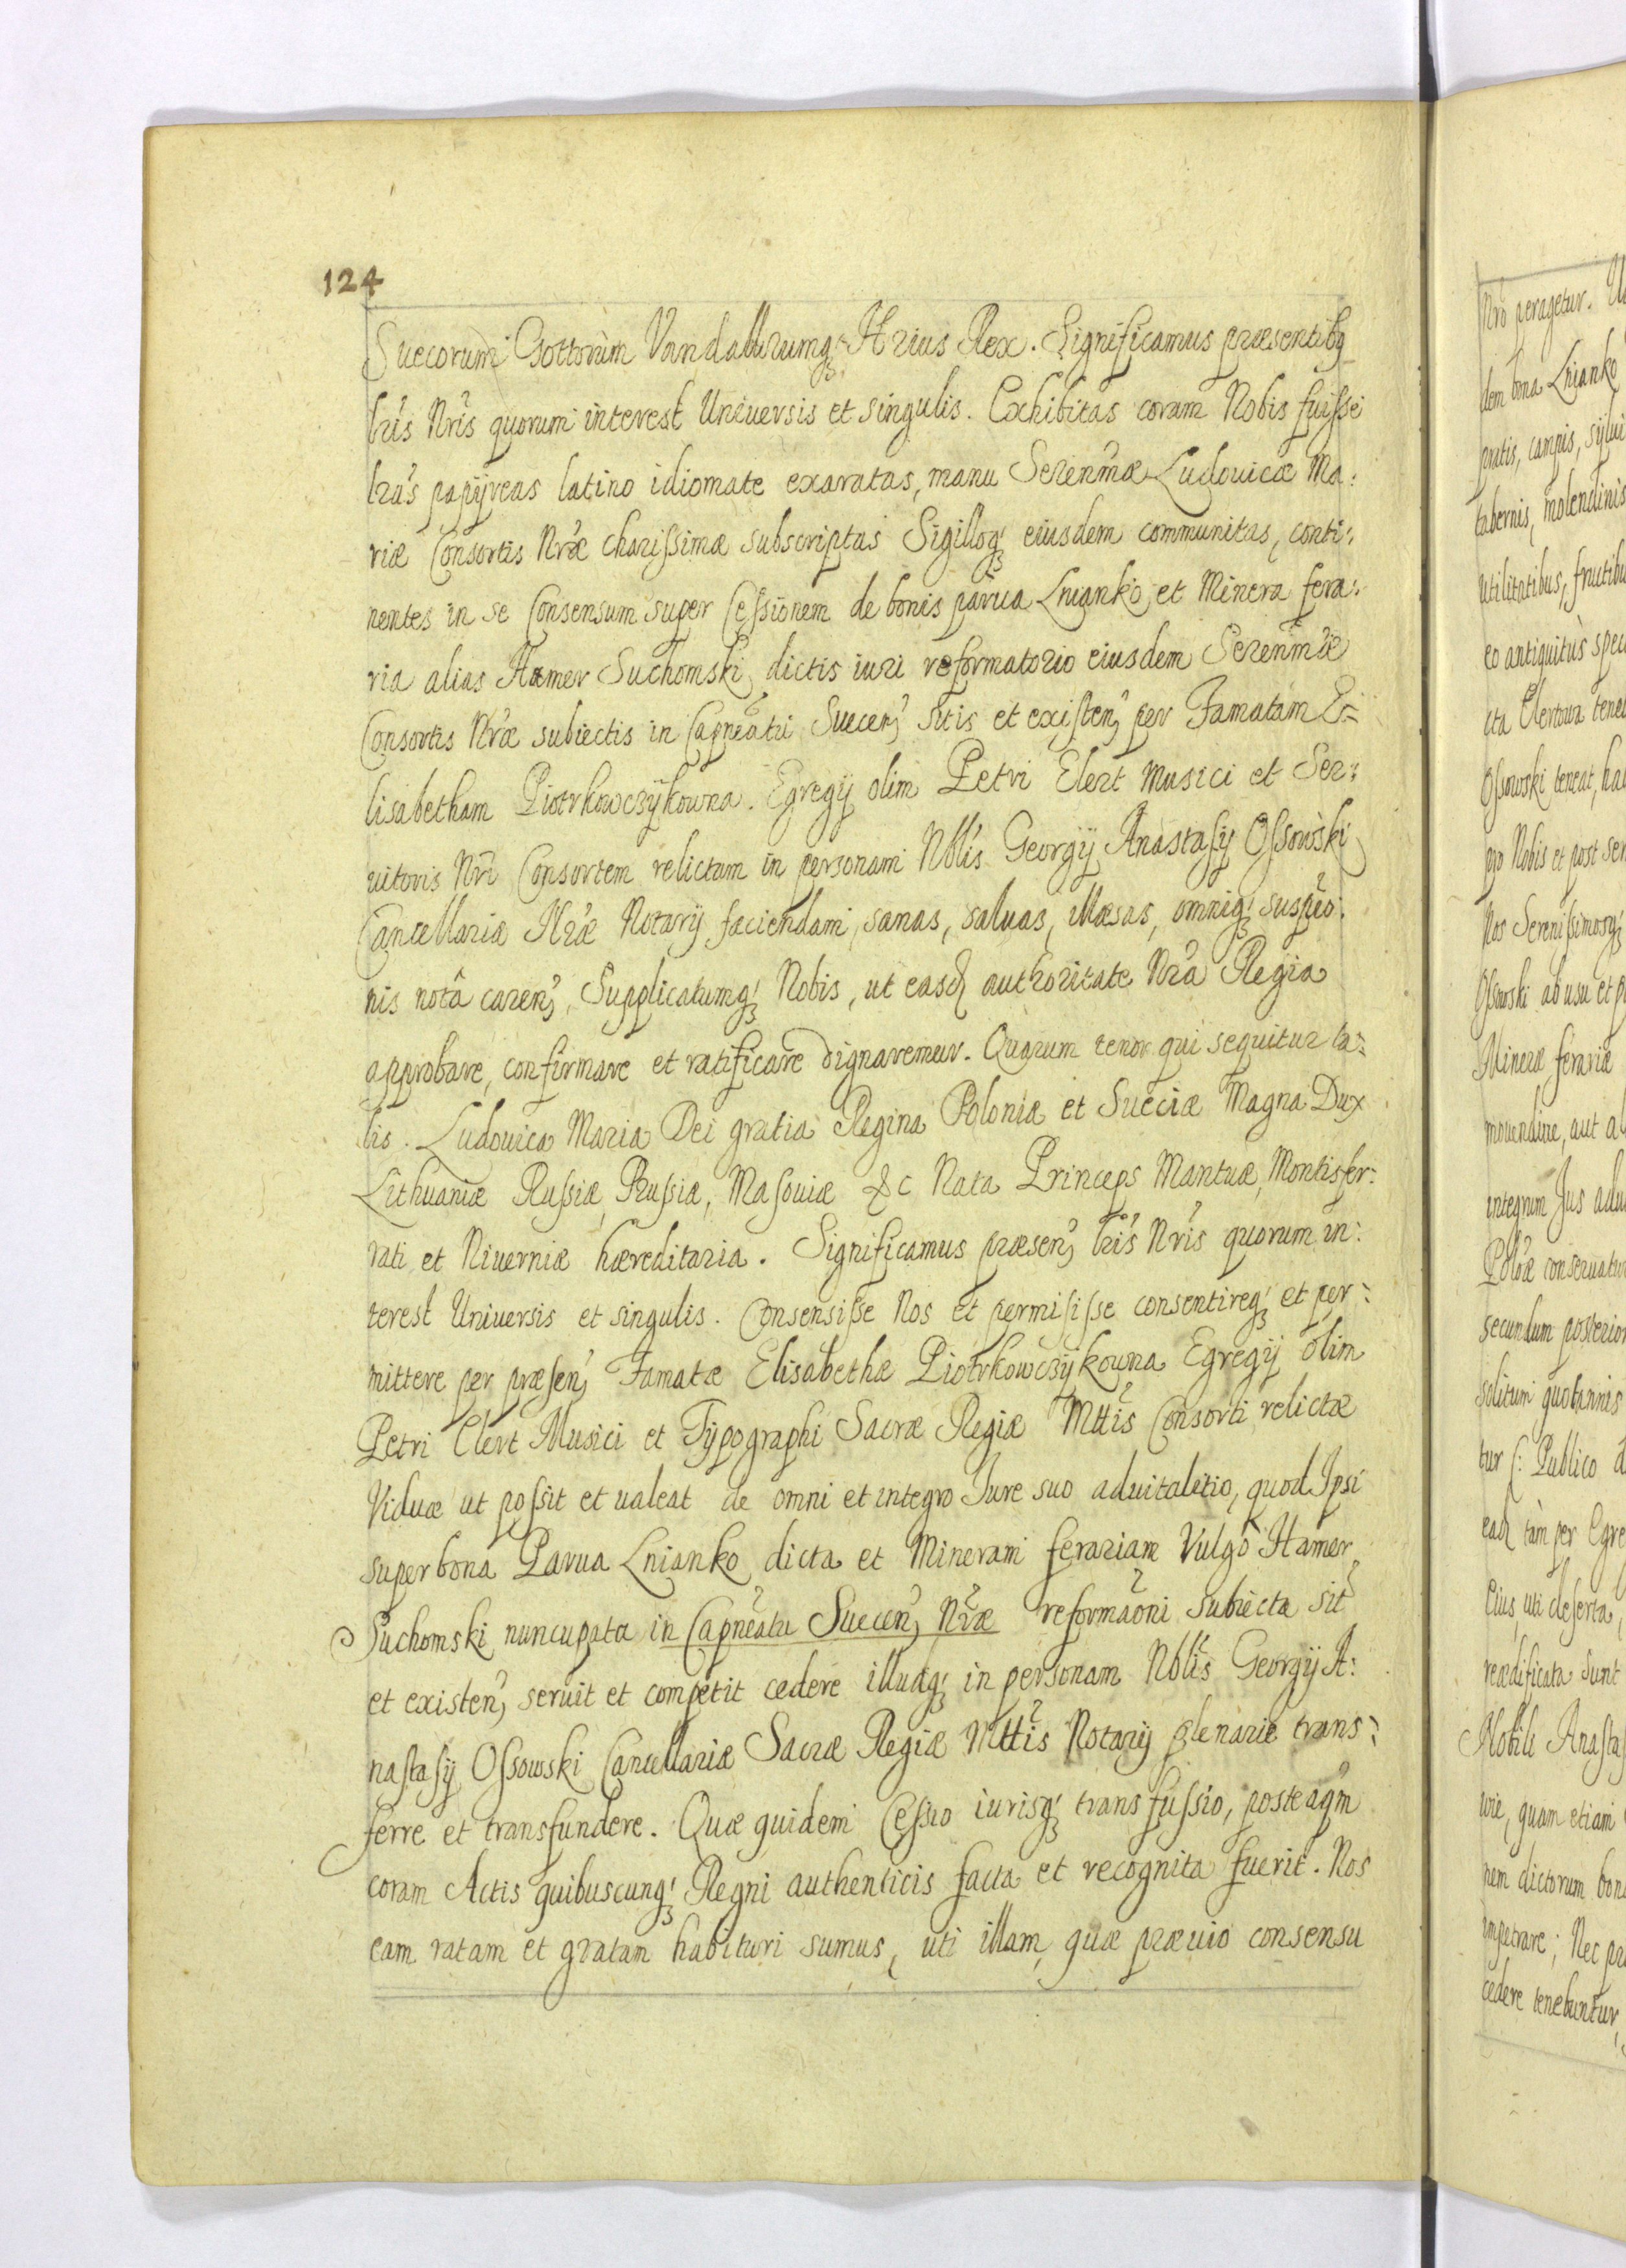 124
Suecorum Gottorum Vandalorumq́ȝ Hrius Rex. Significamus præsentibȝ
lris Nris quorum interest Uniuersis et singulis. Exhibitas coram Nobis fuisse
lras papyreas latino idiomate exaratas, manu Serenmæ Ludouicæ Ma:
riæ Consortis Nræ charissimæ subscriptas Sigilloq́ȝ eiusdem communitas, conti:
nentes in se Consensum super Cessionem de bonis parua Lnianko et Minera fera:
ria alias Hamer Suchomski dictis iuri reformatorio eiusdem Serenmæ
Consortis Nræ subiectis in Capneatu Suecen̛ sitis et existen̛ per Famatam E=
lisabetham Piotrkowczykowna. Egregij olim Petri Elert Musici et Ser:
uitoris Nri Consortem relictam in personam Nblis Georgij Anastasij Ossowski
Cancellariæ Nræ Notarij faciendam, sanas, saluas, illæsas, omniq́ȝ suspio:
nis notâ caren̛, Supplicatumq́ȝ Nobis, ut easd authoritate Nra Regia
approbare, confirmare et ratificare dignaremur. Quarum tenor qui sequitur ta:
lis. Ludouica Maria Dei gratia Regina Poloniæ et Sueciæ Magna Dux
Lithuaniæ Russiæ, Prussiæ, Masouiæ &c Nata Princeps Mantuæ, Montisfer:
rati et Niuerniæ hæreditaria. Significamus præsen̛ lris Nris quorum in:
terest Uniuersis et singulis. Consensisse Nos et permisisse consentireq́ȝ et per:
mittere per præsen̛ Famatæ Elisabethæ Piotrkowczykowna Egregij olim
Petri Elert Musici et Typographi Sacræ Regiæ Mttis Consorti relictæ
Viduæ ut possit et ualeat de omni et integro Jure suo aduitalitio, quod Ipsi
super bona Parua Lnianko dicta et Mineram ferariam Vulgò Hamer
Suchomski nuncupata in Capneatu Suecen̛ Nræ reformaoni subiecta sit
et existen̛ seruit et competit cedere illudq́ȝ in personam Nblis Georgij A:
nastasij Ossowski Cancellariæ Sacræ Regiæ Mttis Notarij plenarie trans:
ferre et transfundere. Quæ quidem Cessio iurisq́ȝ transfussio, posteaqm
coram Actis quibuscunq́ȝ Regni authenticis facta et recognita fuerit. Nos
eam ratam et gratam habituri sumus, uti illam, quæ præuio consensu
Nro peragetur.
dem bona Lnianko
pratis, campis, sylui
tabernis, molendinis
utilitatibus, fructibu
eo antiquitùs spec
cta Elertowa tene
Ossowski teneat, ha
pro Nobis et post ser
Nos Serenissimosq́ȝ
Ossowski ab usu et p
Mineræ ferariæ
mouendine, aut al
integrum Jus adu
Poloæ conseruatu
secundum posterior
solitum quotannis
tur s: Publico d
ead tàm per Egre
Eius, uti deserta,
reædificata sunt
Nobili Anasta
uie, quam etiam
nem dictorum bon
impetrare; Nec pa
cedere tenebuntur,